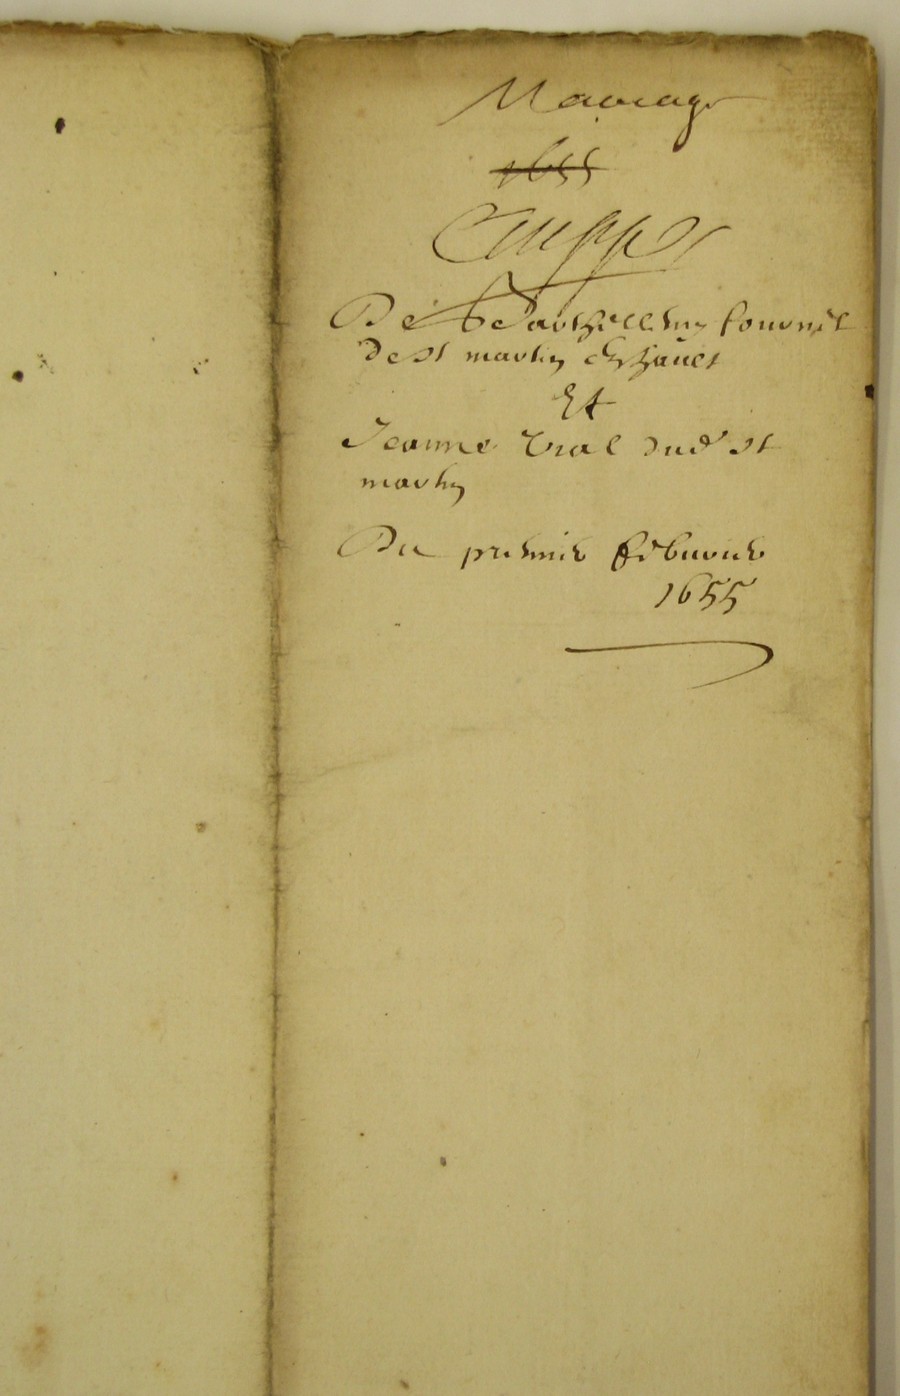 Mariage
1655
De Barthellemy
de St martin
Et
Jeanne vial dud St
martin
Du premier feburier
1655